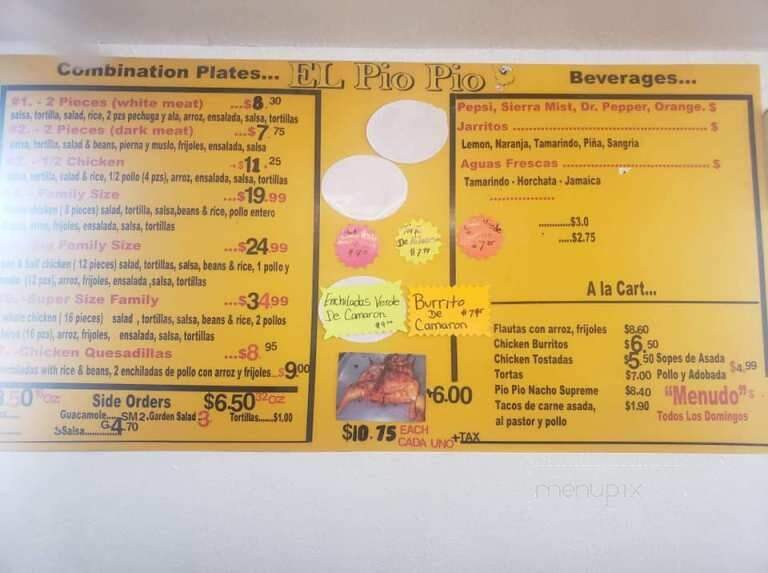 EL Pio Pio
Combination Plates...
#1. - 2 Pieces (white meat) ...$8.30
salsa, tortilla, salad, rice, 2 pzs pechuga y ala, arroz, ensalada, salsa, tortillas
#2. - 2 Pieces (dark meat) ...$7.75
tortilla, salad & beans, pierna y muslo, frijoles, ensalada, salsa
1/2 Chicken ...$11.25
tortilla, salad & rice, 1/2 pollo (4 pzs), arroz, ensalada, salsa, tortillas
Family Size ...$19.99
chicken ( 8 pieces) salad, tortilla, salsa,beans & rice, pollo entero
arroz, frijoles, ensalada, salsa, tortillas
Family Size ...$24.99
& half chicken ( 12 pieces) salad, tortillas, salsa, beans & rice, 1 pollo y
(12 pzs), arroz, frijoles, ensalada ,salsa, tortillas
-Super Size Family ...$34.99
whole chicken ( 16 pieces) salad , tortillas, salsa, beans & rice, 2 pollos
(16 pzs), arroz, frijoles, ensalada, salsa, tortillas
-Chicken Quesadillas ...$8.95
with rice & beans, 2 enchiladas de pollo con arroz y frijoles...$9.00
.50 oz Side Orders $6.50 32oz
Guacamole......SM2. Garden Salad 3 Tortillas......$1.00
Salsa.........G4.70
De
Enchiladas Verde
De Camaron
Burrito
De
Camaron
$6.00
$10.75 EACH
CADA UNO +TAX
Beverages...
Pepsi, Sierra Mist, Dr. Pepper, Orange. $
Jarritos ........ $
Lemon, Naranja, Tamarindo, Piña, Sangria
Aguas Frescas ........ $
Tamarindo - Horchata - Jamaica
............$3.0
.....$2.75
A la Cart...
Flautas con arroz, frijoles $8.60
Chicken Burritos $6.50
Chicken Tostadas $5.50 Sopes de Asada
Tortas $7.00 Pollo y Adobada $4.99
Pio Pio Nacho Supreme $8.40 "Menudo" $
Tacos de carne asada, $1.90 Todos Los Domingos
al pastor y pollo
menupix